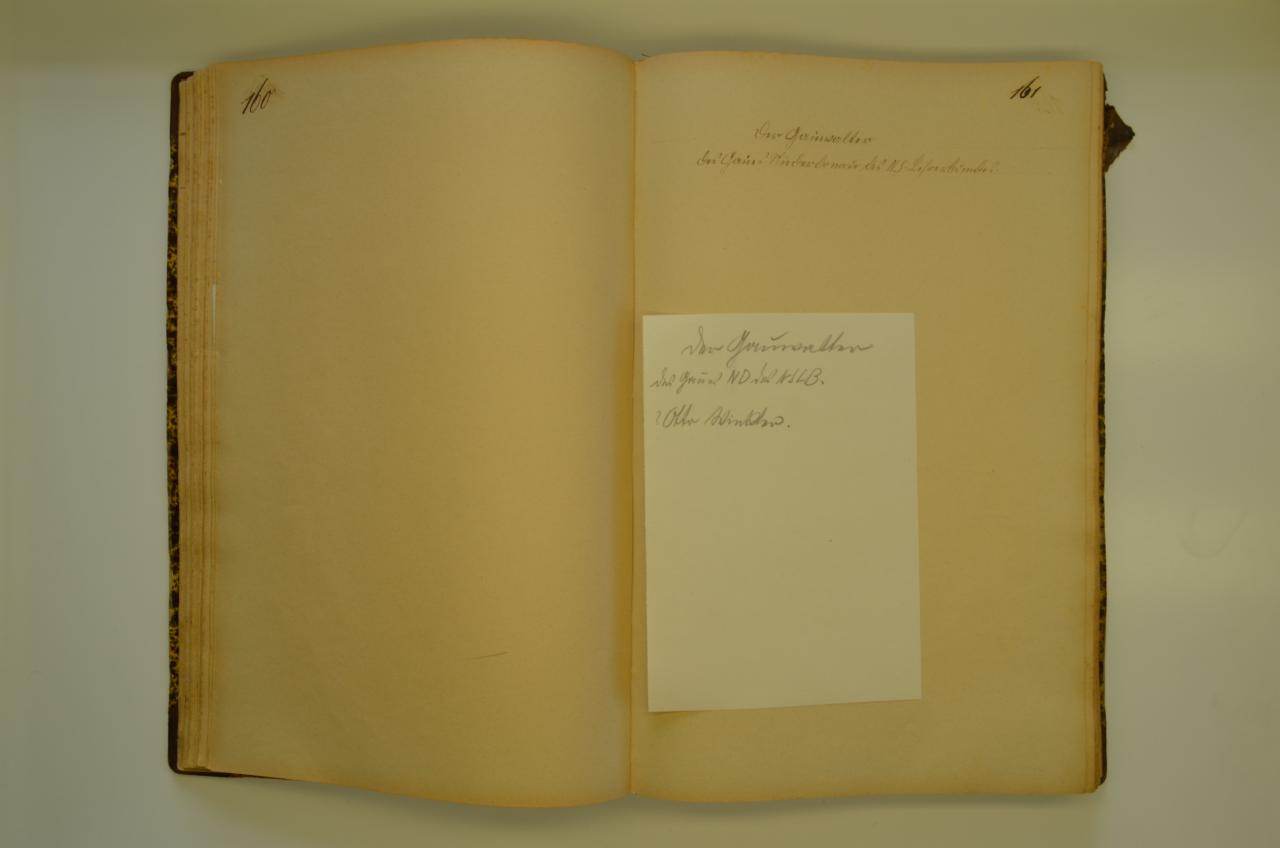 160
161
Der Gauwalter
des Gaues Niederdonau des NS-Lehrerbundes
Der Gauwalter
des Gaues ND des NSLB.
? Otto Winkler.